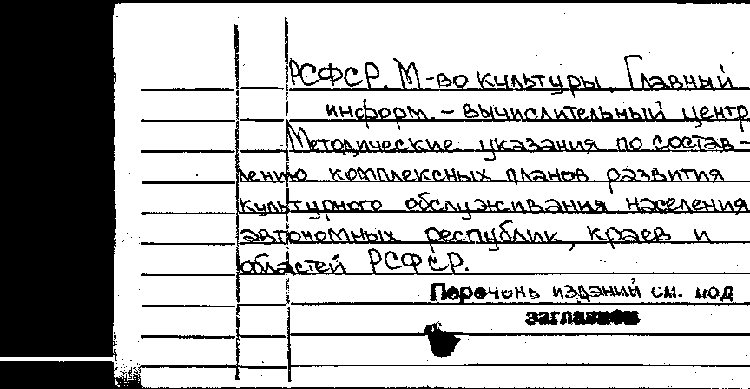 РСФСР. М-во культуры. Главный
информ. - вычислительный центр
Методические указания по состав-
лению комплексных планов развития
культурного обслуживания населения
автономных республик, краев и
областей РСФСР.
Перечень изданий см. под
заглавием